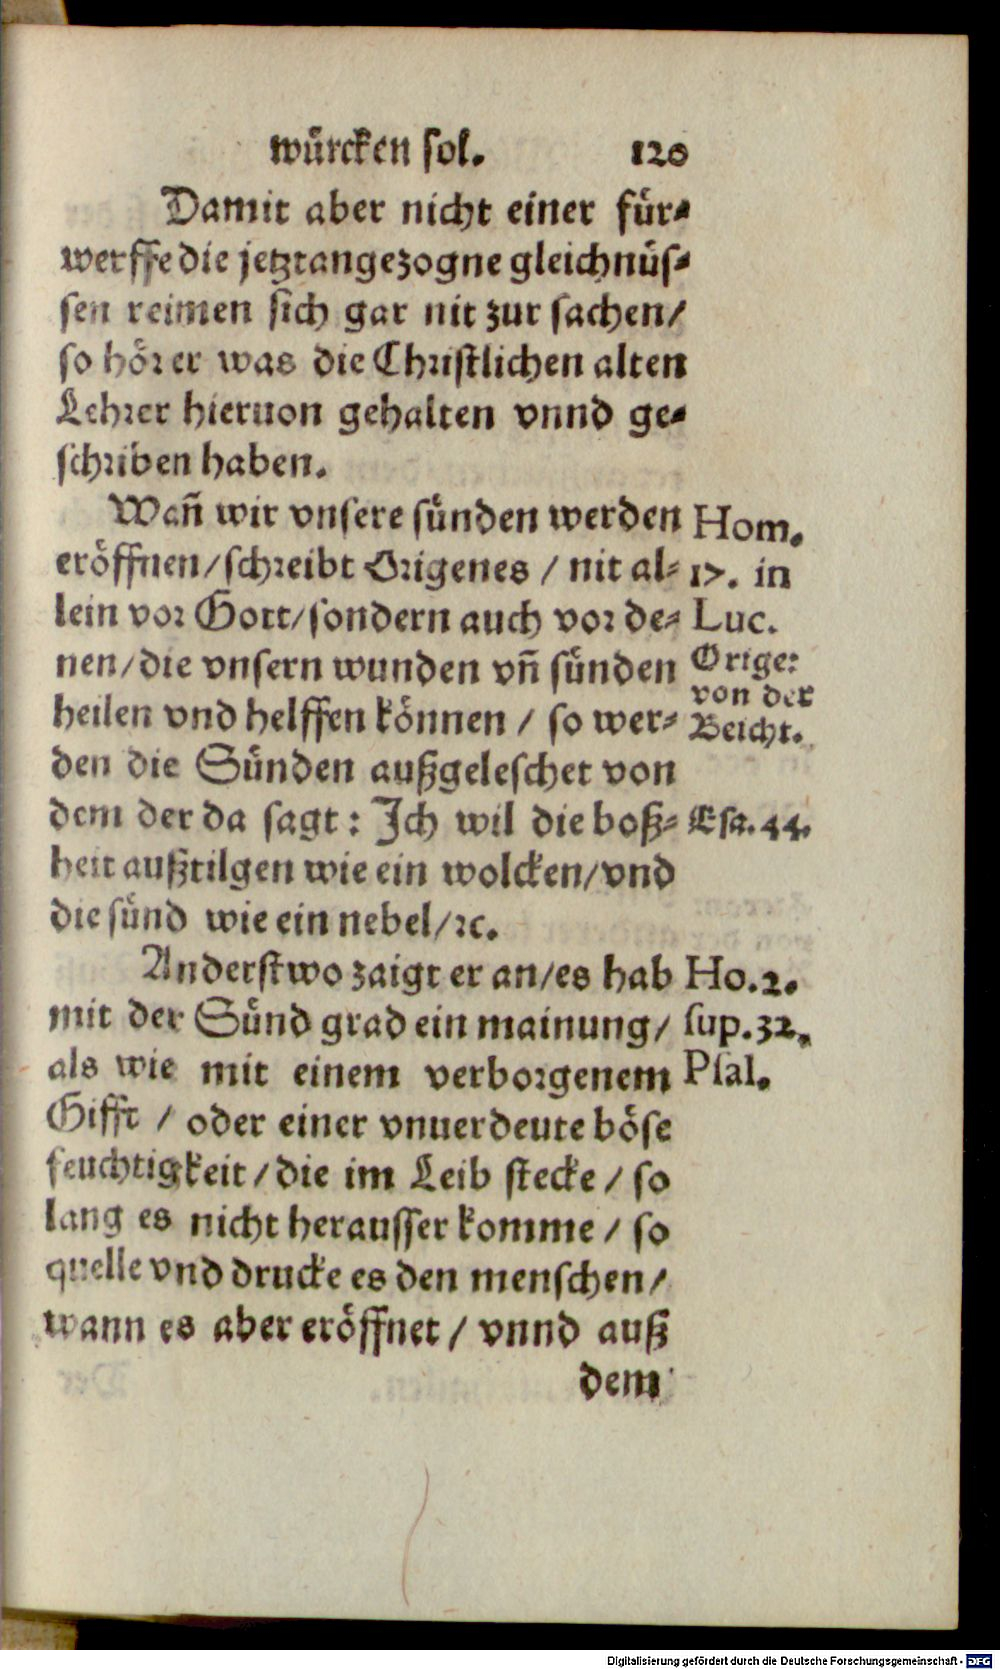 würcken sol. 120
Damit aber nicht einer für-
werffe die jetztangezogne gleichnüs-
sen reimen sich gar nit zur sachen/
so hör er was die Christlichen alten
Lehrer hieruon gehalten vnnd ge-
schriben haben.
Wañ wir vnsere sünden werden
eröffnen/schreibt Origenes / nit al-
lein vor Gott/sondern auch vor de-
nen/die vnsern wunden vñ sünden
heilen vnd helffen können / so wer-
den die Sünden außgeleschet von
dem der da sagt: Ich wil die boß-
heit außtilgen wie ein wolcken/vnd
die sünd wie ein nebel/ꝛc.
Anderstwo zaigt er an/es hab
mit der Sünd grad ein mainung/
als wie mit einem verborgenem
Gifft / oder einer vnuerdeute böse
feuchtigkeit/die im Leib stecke / so
lang es nicht herausser komme / so
quelle vnd drucke es den menschen/
wann es aber eröffnet / vnnd auß
dem
Hom.
17. in
Luc.
Orige:
von der
Beicht.
Esa. 44.
Ho. 2.
sup. 32.
Psal.
Digitalisierung gefördert durch die Deutsche Forschungsgemeinschaft - DFG